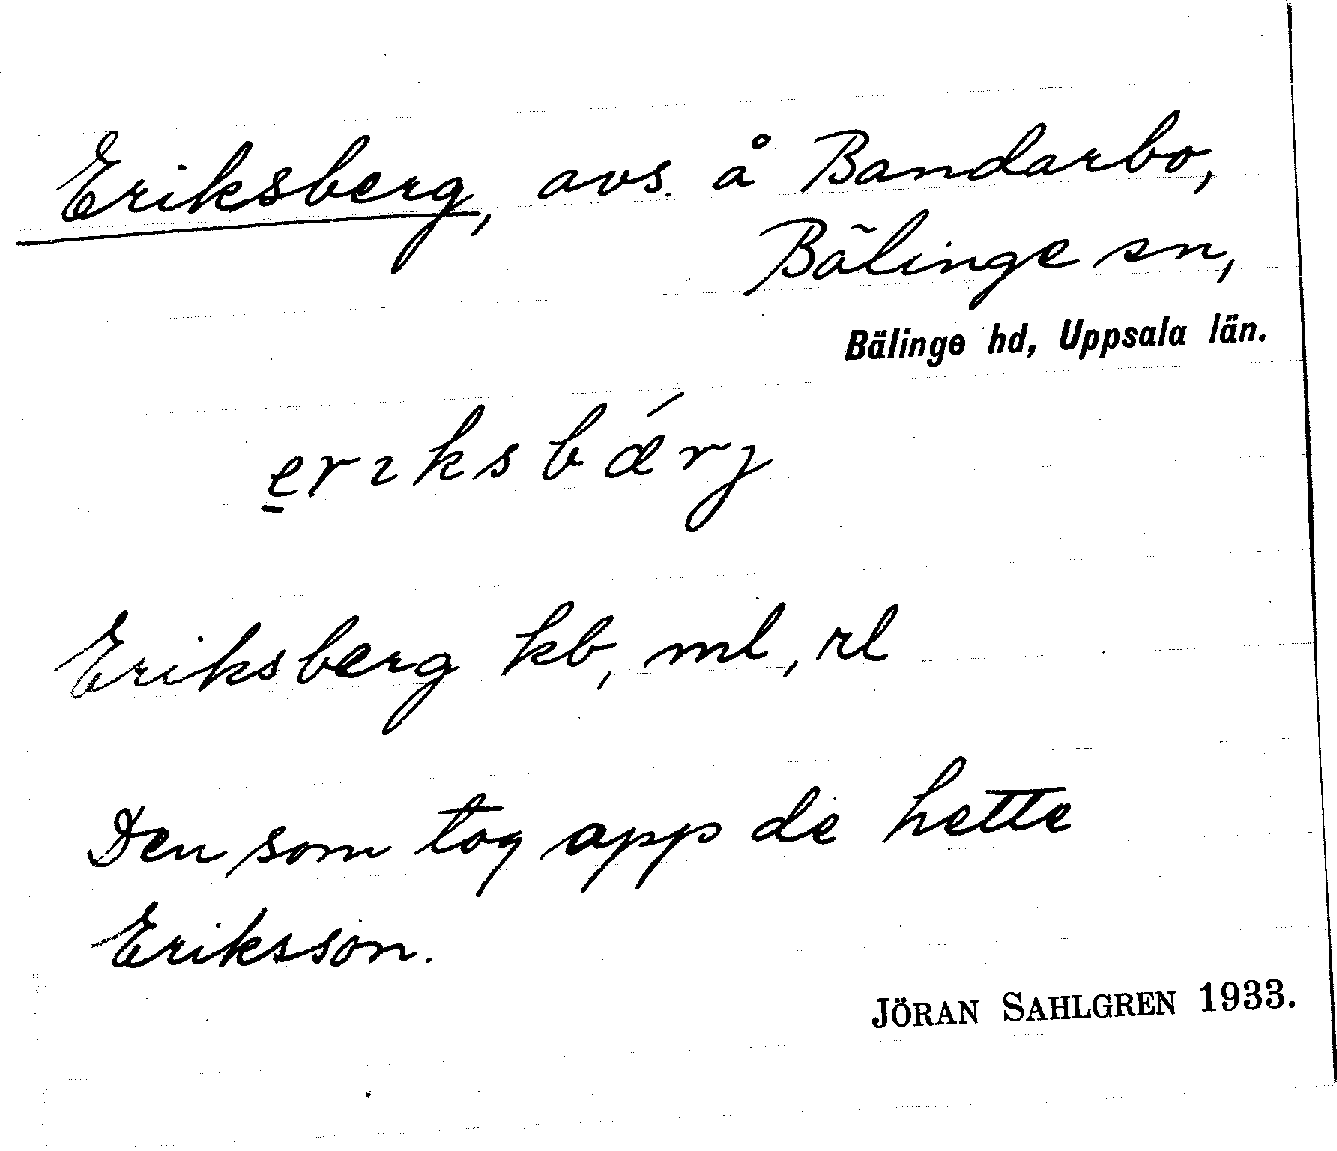 Eriksberg, avs. å Bandarbo,
Bälinge sn,
Bälinge hd, Uppsala län.
e̲rıksbǽrj
Eriksberg kb, ml, rl
Den som tog app de hette
Eriksson.
JÖRAN SAHLGREN 1933.